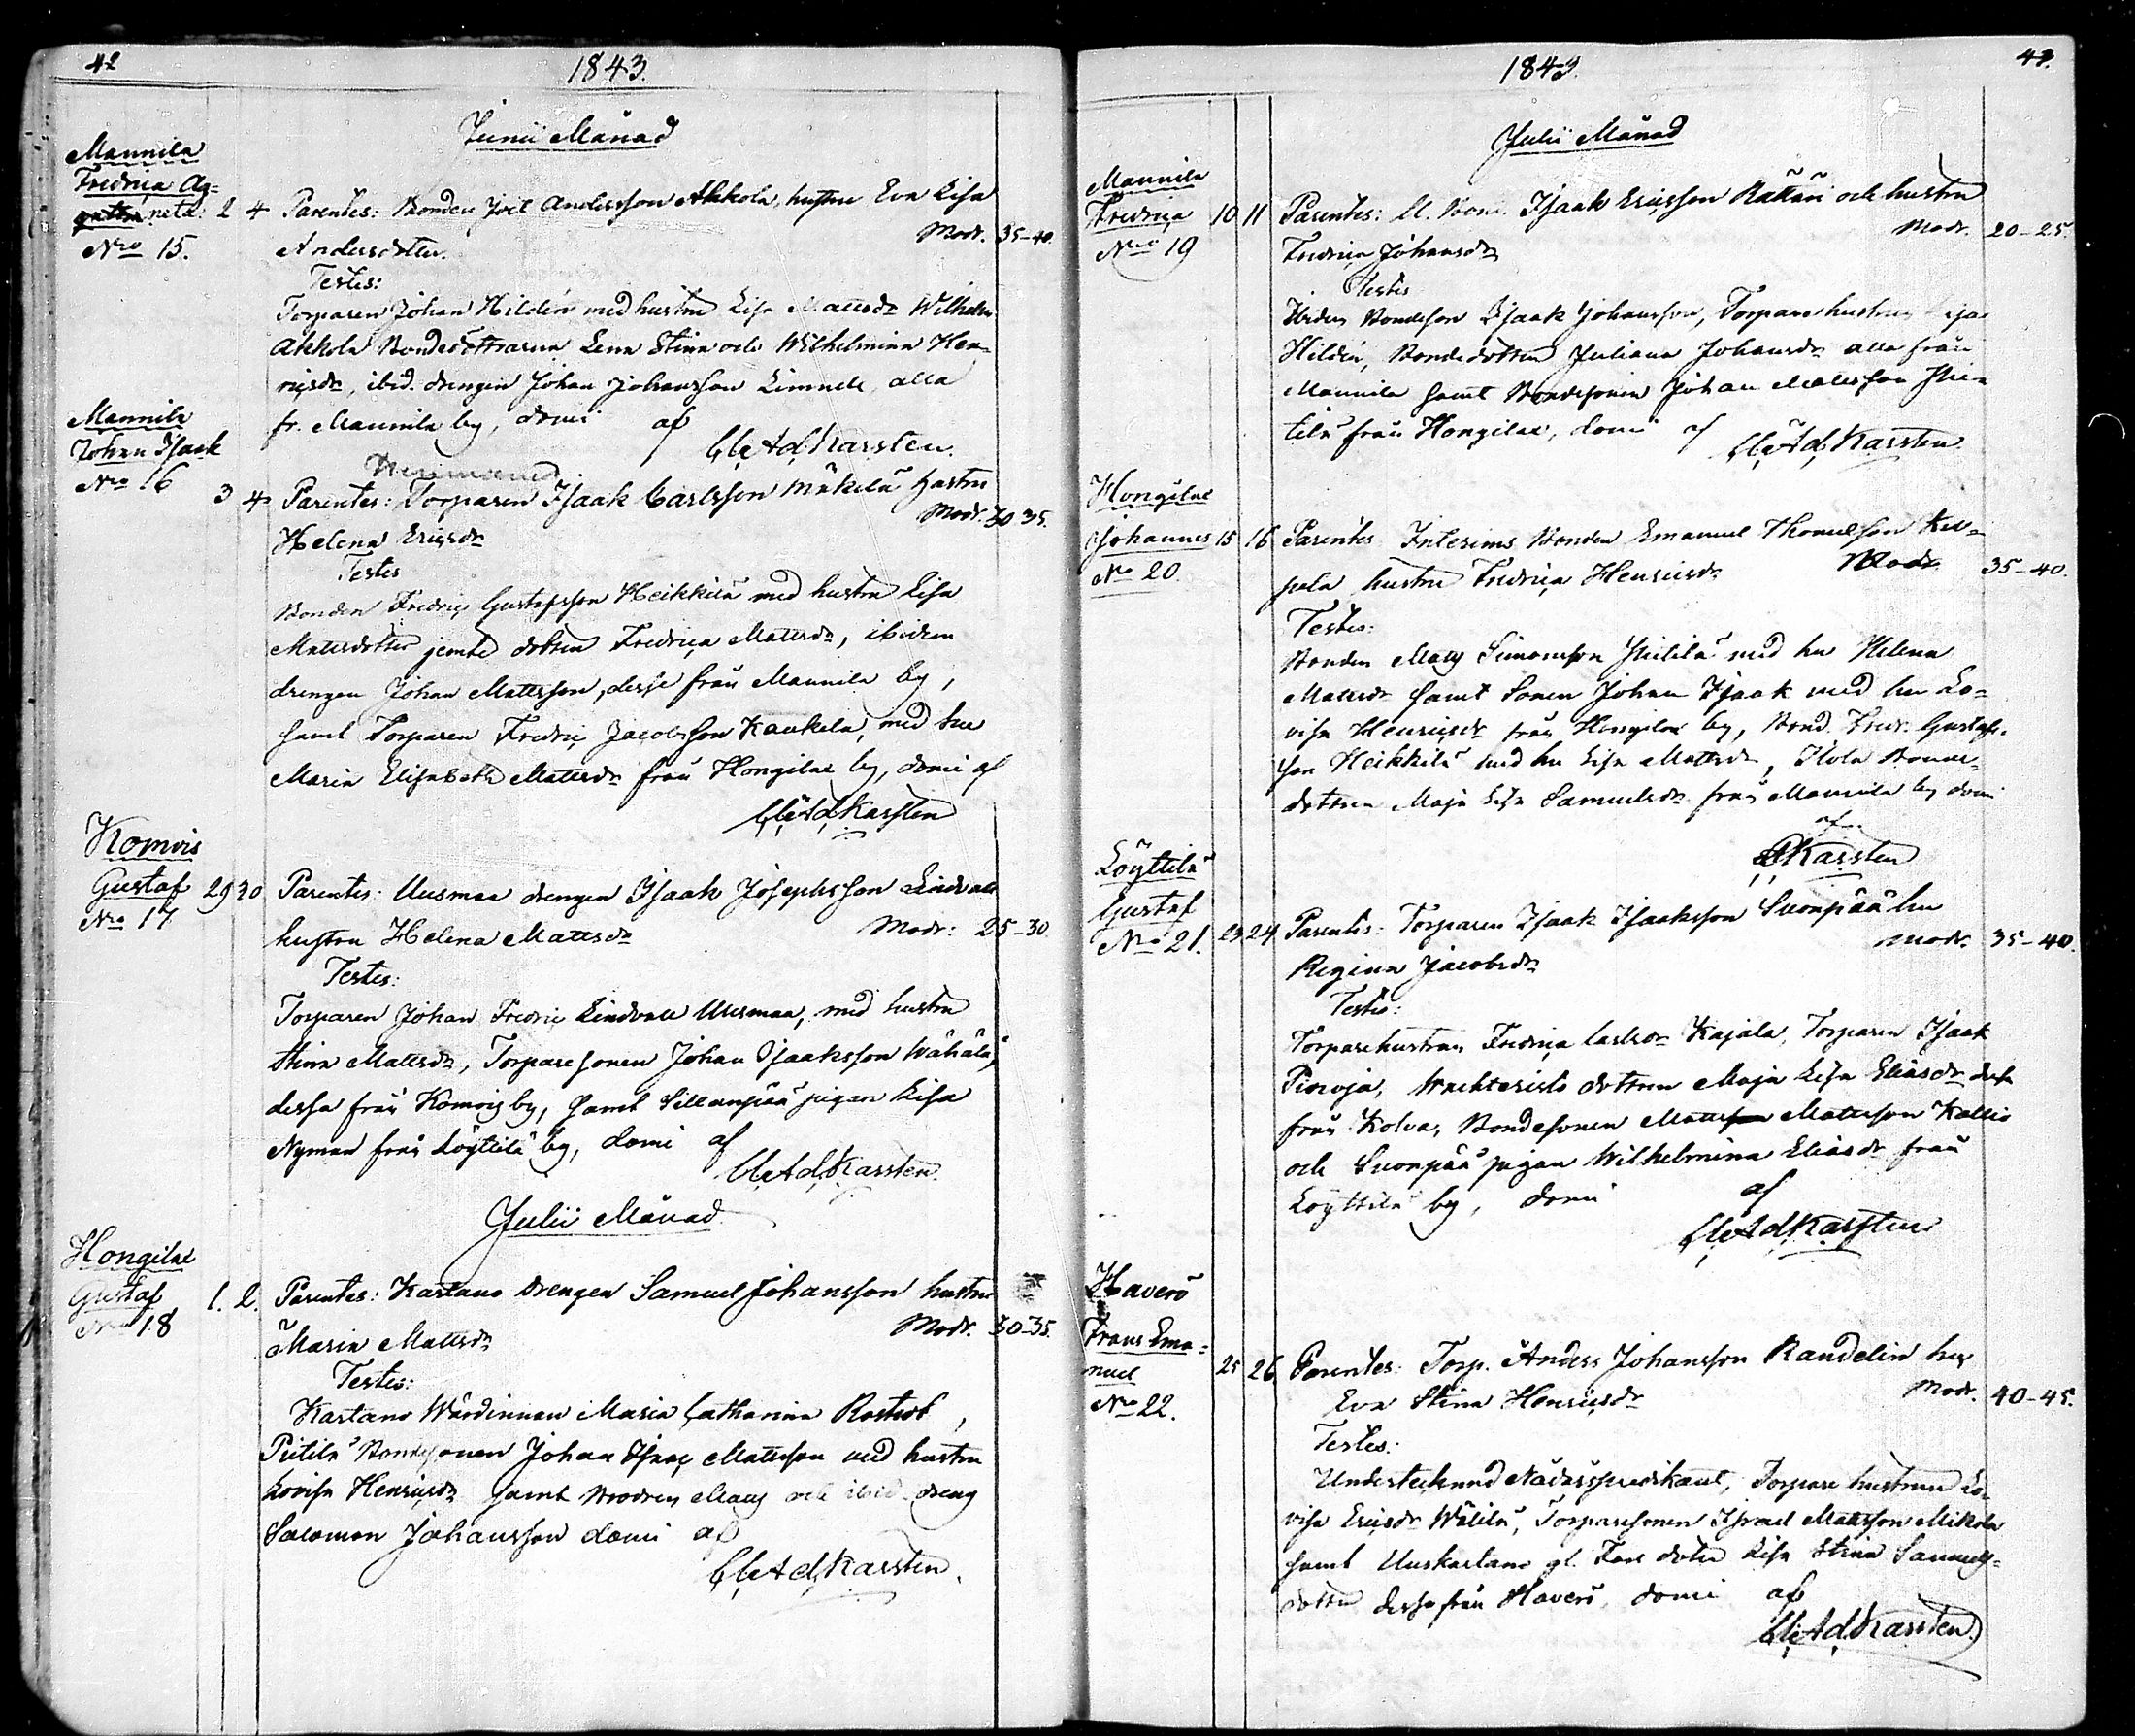 42
1843.
Junii Månad
Mannila
Fredrica Ag=
neta: 2 4 Parentes: Bonden Joel Andersson Akkola, hustru Eva Lisa
Modr. 35-40.
No 15. Andersdotter.
Testes:
Torparen Johan Hildén med hustru Lisa Mattsdr Wilhelm
Akkola Bondedöttrarna Lena Stina och Wilhelmina Hen=
ricsdr, ibid. drengen Johan Johansson Limnell, alla
fr. Mannila by, domi af
C. Ad. Karsten.
Mannila
Johan Isaak
No 16
3 4 Parentes: Torparen Isaak Carlsson Mäkelä hustru
Modr. 30 35.
Helena Ericsdr
Testes
Bonden Fredric Gustafsson Heikkilä med hustru Lisa
Mattsdotter jemte dottren Fredrica Mattsdr, ibidem
drengen Johan Mattsson, desse från Mannila by,
samt Torparen Fredric Jacobsson Kaukela, med hu
Maria Elisabeth Mattsdr från Hongilax by, domi af
C. Ad. Karsten
Komois
Gustaf 29 30 Parentes: Uusmaa drengen Isaak Josephsson Lindvall
No 17
hustru Helena Mattsdr Modr: 25-30
Testes:
Torparen Johan Fredric Lindvall Uusmaa, med hustru
Stina Mattsdr, Torparesonen Johan Isaaksson Wähälä,
dessa från Komois by, samt Sillanpää pigan Lisa
Nyman från Löyttilä by, domi af
C. Ad. Karsten.
Julii Månad
Hongilax
Gustaf 1. 2. Parentes: Kartano drengen Samuel Johansson hustru
No 18
Maria Mattsdr Modr. 30-35.
Testes:
Kartano Wärdinnan Maria Catharina
Pietilä Bondesonen Johan Isaac Mattsson med hustru
Lovisa Henricsdr samt Brodren Mats och ibid. dreng
Salomon Johansson domi af
C. Ad. Karsten.
1843.
43.
Julii Månad
Mannila
Fredrica 10 11 Parentes: Bond. Isaak Ericsson Rättäri och hustru
Modr. 20-25.
No 19 Fredrica Johansdr
Testes
Bondeson Isaak Johansson, Torparehustrun
Hildén, Bondedottren Juliana Johansdr alla från
Mannila samt Bondesonen Johan Mattsson Pie=
tilä från Hongilax, domi af
C. Ad. Karsten.
Hongilax
Johannes 15 16 Parentes Interims Bonden Emanuel Thomasson
No 20. hustru Fredrica Henricsdr Modr. 35-40.
Testes:
Bonden Mats Simonsson Pietilä med hu Helena
Mattsdr samt Sonen Johan Isaak med hu Lo=
visa Henricsdr från Hongilax by, Bond. Fredr. Gustafs=
son Heikkilä med hu Lisa Mattsdr, Ilola Bonde=
dottren Maja Lisa Samuelsdr från Mannila by domi
af
Karsten
Löyttilä
Gustaf
No 21. 23 24 Parentes: Torparen Isaak Isaaksson Suonpää hu
Modr. 35-40.
Regina Jacobsdr
Testes:
Torparehustrun Fredrica Carlsdr Kajala, Torparen Isaak
Piiroja, dottren Maja Lisa Eliasdr dessa
från Kolva, Bondesonen Mattsson Mattsson Kallio
och Suonpää pigan Wilhelmina Eliasdr från
Löyttilä by, domi af
C. Ad. Karsten
Haverö
Frans Ema=
nuel 25 26 Parentes: Torp. Anders Johansson Randelin hu
No 22. Modr. 40-45.
Eva Stina Henricsdr
Testes:
Undertecknad Nådårspredikant, Torpare hustrun Lo=
visa Ericsdr Wälilä, Torparesonen Israel Mattsson Mikola
samt Uuskartano gl. dotter Lisa Stina Samuels=
dotter dessa från Haverö, domi af
C. Ad. Karsten.